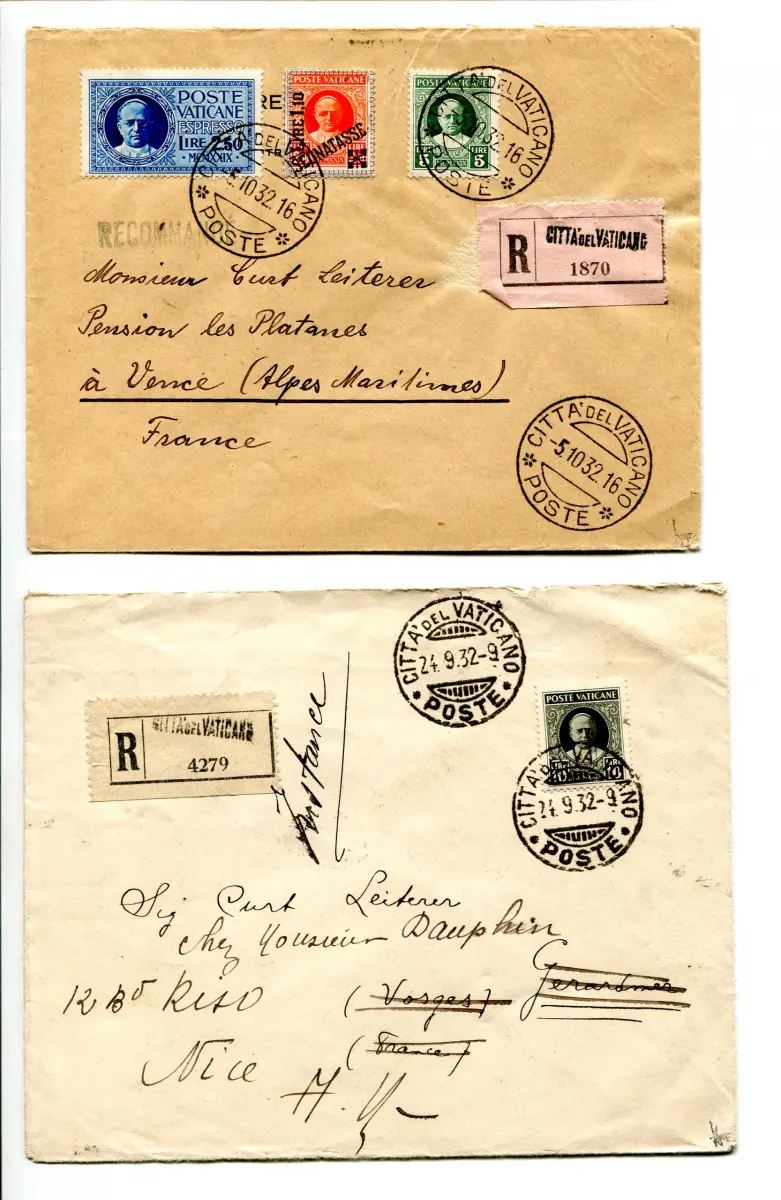 POSTE
VATICANE
ESPRESSO
LIRE 2.50
MCMXXIX
RE
POSTE VATICANE
LIRE 1,10
SEGNATASSE
LIRE
POSTE VATICANE
LIRE
5
LIRE
5
CITTA' DEL VATICANO
-5.10.32.16
POSTE
CITTA' DEL VATICANO
32.16
POSTE
RECOMMAN
R
CITTÀ DEL VATICANO
1870
Monsieur Curt Leiterer
Pension les Platanes
à Vence (Alpes Maritimes)
France
CITTA' DEL VATICANO
-5.10.32.16
POSTE
CITTA' DEL VATICANO
24.9.32-9
POSTE
R
CITTÀ DEL VATICANO
4279
POSTE VATICANE
LIRE
10
LIRE
10
CITTA' DEL VATICANO
24.9.32-9
POSTE
Sig Curt Leiterer
chez Monsieur Dauphin
12 Bd Riso (Vosges) Gerardmer
Nice (France)
A. M.